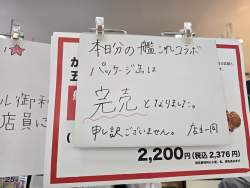 本日分の艦これコラボ
パッケージ缶は
完売となりました。
申し訳ございません。 店主一同
2,200円(税込2,376円)
ル御礼
店員に
か
五